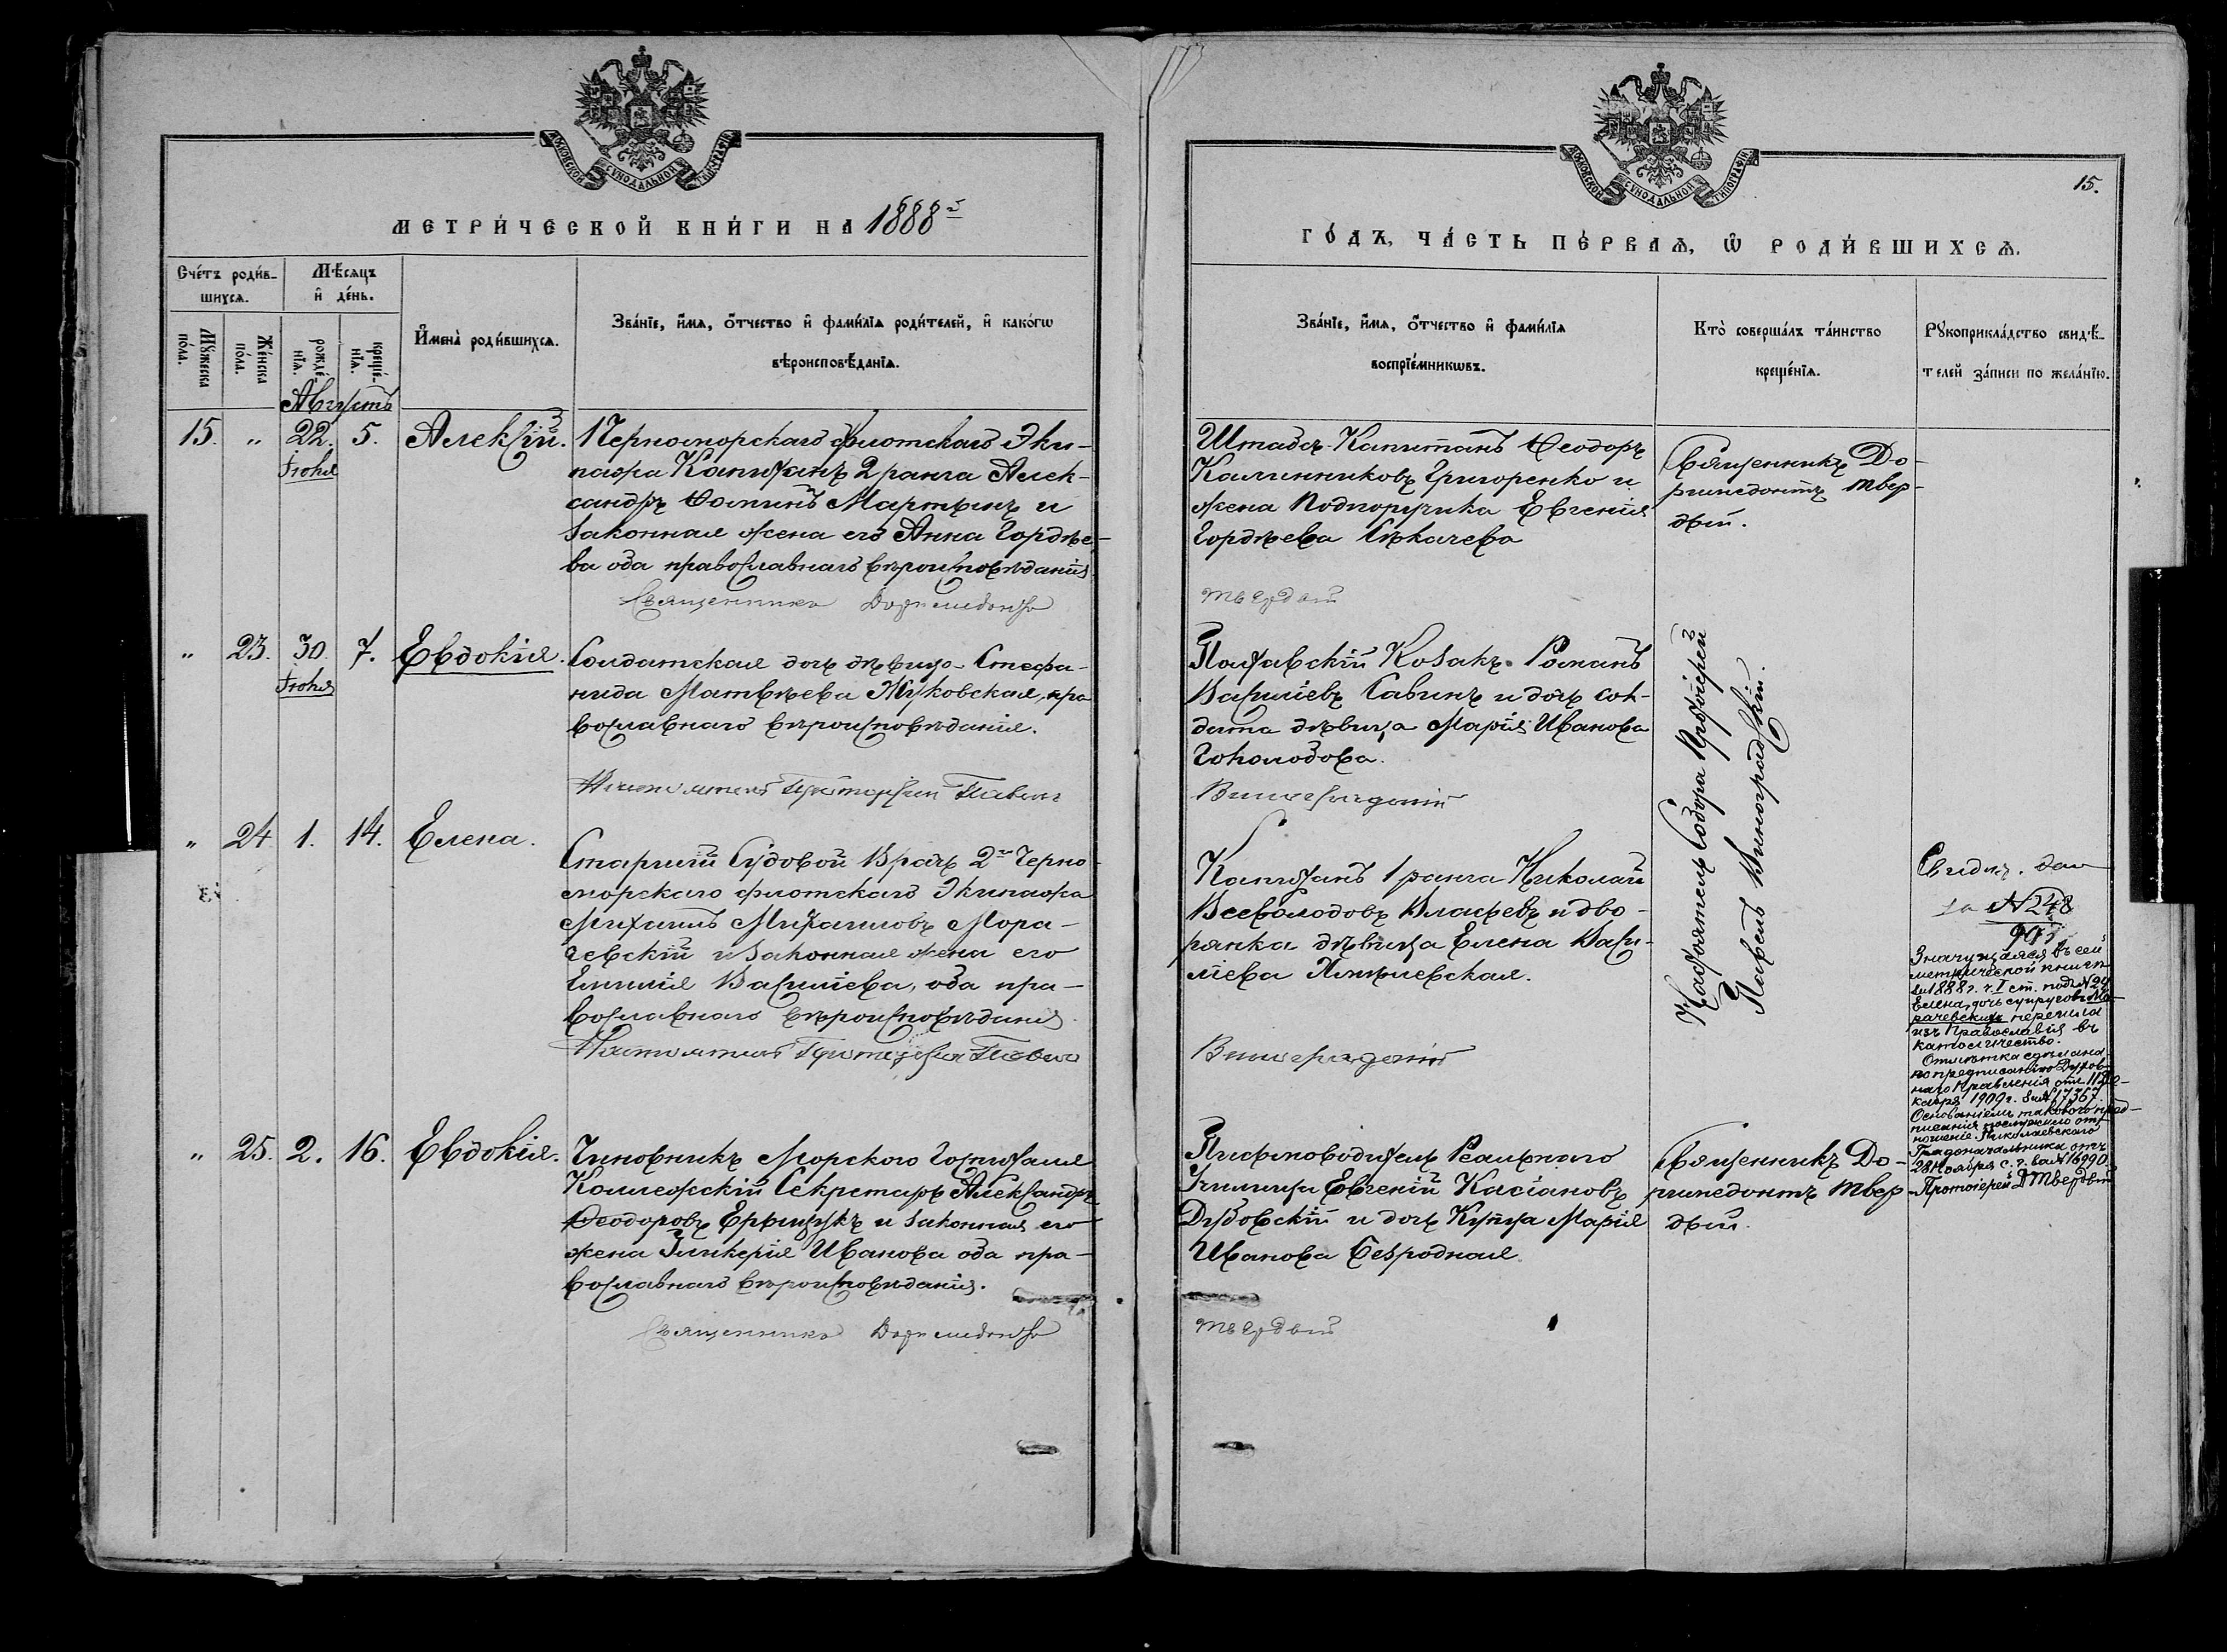 МОСКОВСКОЙ СѴНОДАЛЬНОЙ ТИПОГРАФІИ
МЕТРИ́ЧЕСКОЙ КНИ́ГИ НА 1888й
Сче́тъ роди́в-
шихсѧ.
Мѣ́сяцъ
и҆ де́нь.
И҆мена̀ роди́вшихсѧ.
Зва́нїе, и҆́мѧ, о҆́тчество и҆ фами́лїѧ роди́телей, и҆ како́гѡ
вѣроисповѣ́данїѧ.
Мꙋ́жеска по́ла.
Же́нска по́ла.
рожде́-нїѧ.
креще́-нїѧ.
Августъ
15. „ 22. 5. Алексій. 1 Черноморскаго флотскаго Эки-
Іюля
пажа Капитанъ 2 ранга Алек-
сандръ Ѳоминъ Мартынъ и
законная жена его Анна Гордѣе-
ва оба православнаго вѣроисповѣданія
Священникъ Доримедонтъ
„ 23. 30. 7. Евдокія. Солдатская дочь дѣвица Стефа-
Іюля
нида Матвѣева Жуковская, пра
вославнаго вѣроисповѣданія.
Настоятель Протоіерей Павелъ
„ 24 1. 14. Елена.
Старшій Судовой Врачъ 2го Черно-
морскаго флотскаго Экипажа
Михаилъ Михаиловъ Мора-
чевскій и законная жена его
Емилія Васильева, оба пра-
вославнаго вѣроисповѣданія.
Настоятель Протоіерей Павелъ
„ 25. 2. 16. Евдокія. Чиновникъ Морского Госпиталя
Коллежскій Секретарь Александръ
Ѳеодоровъ и законная его
жена Гликерія Иванова оба пра-
вославнаго вѣроисповѣданія.
Священникъ Доримедонтъ
МОСКОВСКОЙ СѴНОДАЛЬНОЙ ТИПОГРАФІИ
15.
ГО́ДЪ, ЧА́СТЬ ПЕ́РВАѦ, Ѡ҆ РОДИ́ВШИХСѦ.
Зва́нїе, и҆́мѧ, о҆́тчество и҆ фами́лїѧ
воспрїе́мникѡвъ.
Кто̀ соверша́лъ та́инство
креще́нїѧ.
Рꙋкоприкла́дство свидѣ́-
телей за́писи по жела́нїю.
Штабсъ-Капитанъ Ѳеодоръ
Калинниковъ Григоренко и
жена Подпоручика Евгенія
Гордѣева Сѣкачева
Твердый
Священникъ До-
римедонтъ Твер-
дый.
Полтавскій Козакъ Романъ
Васильевъ Савинъ и дочь сол-
дата дѣвица Марія Иванова
Гоholodova
Виноградскій
Настоятель Собора Протоіерей
Павелъ Виноградскій.
Капитанъ 1 ранга Николай
Всеволодовъ Власьевъ и дво-
рянка дѣвица Елена Васи-
льева
Виноградскій
Свидѣт. дан
за № 248
Значущаяся въ сей
метрической книгѣ
за 1888 г. ч. I ст. подъ № 24
Елена, дочь супруговъ Мо-
рачевскихъ перешла
изъ Православія въ
католичество.
Отмѣтка сдѣлана
по предписанію Духов-
наго Правленія отъ 11 Де-
кабря 1909 г. за № 17367.
Основаніемъ такового пред-
писанія послужило от-
ношеніе Николаевскаго
Градоначальника отъ
28 Ноября с. г. за № 16990.
Протоіерей Д Твердый
Писмоводитель Реальнаго
Училища Евгеній Касіановъ
Дубовскій и дочь Купца Марія
Иванова Безродная.
Твердый
Священникъ До-
римедонтъ Твер
дый.